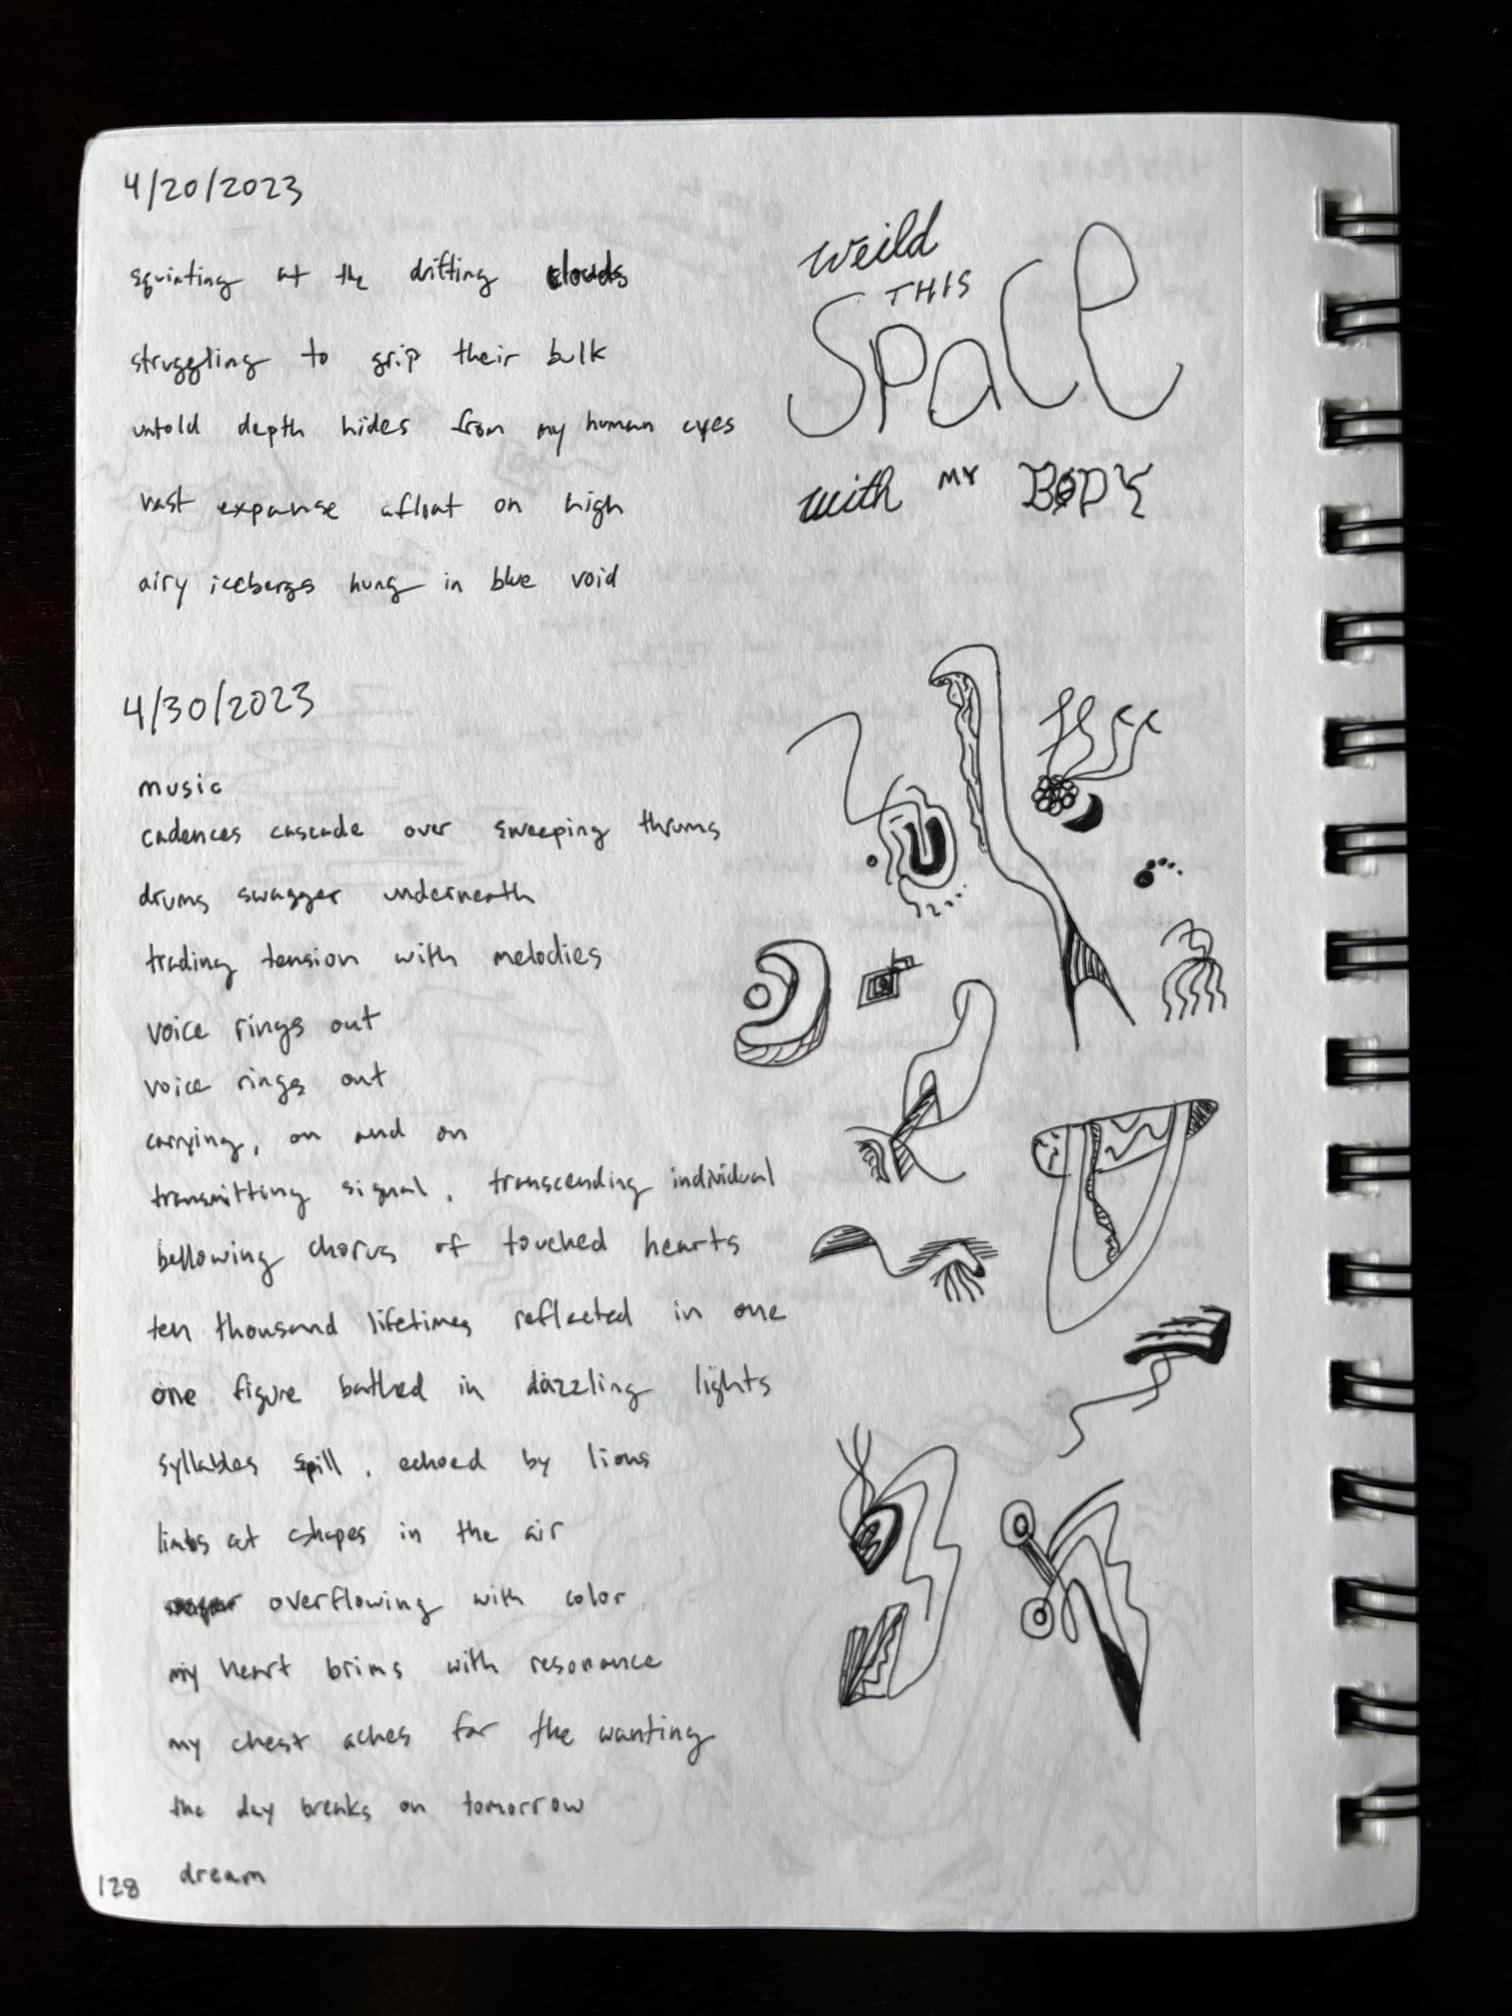 4/20/2023
squinting at the drifting clouds
struggling to grip their bulk
untold depth hides from my human eyes
vast expanse afloat on high
airy icebergs hung in blue void
weild
THIS
SPaCe
with MY BODY
4/30/2023
music
cadences cascade over sweeping thrums
drums swagger underneath
trading tension with melodies
voice rings out
voice rings out
carrying, on and on
transmitting signal, transcending individual
bellowing chorus of touched hearts
ten thousand lifetimes reflected in one
one figure bathed in dazzling lights
syllables spill, echoed by lions
limbs cut shapes in the air
overflowing with color
my heart brims with resonance
my chest aches for the wanting
the day breaks on tomorrow
dream
128